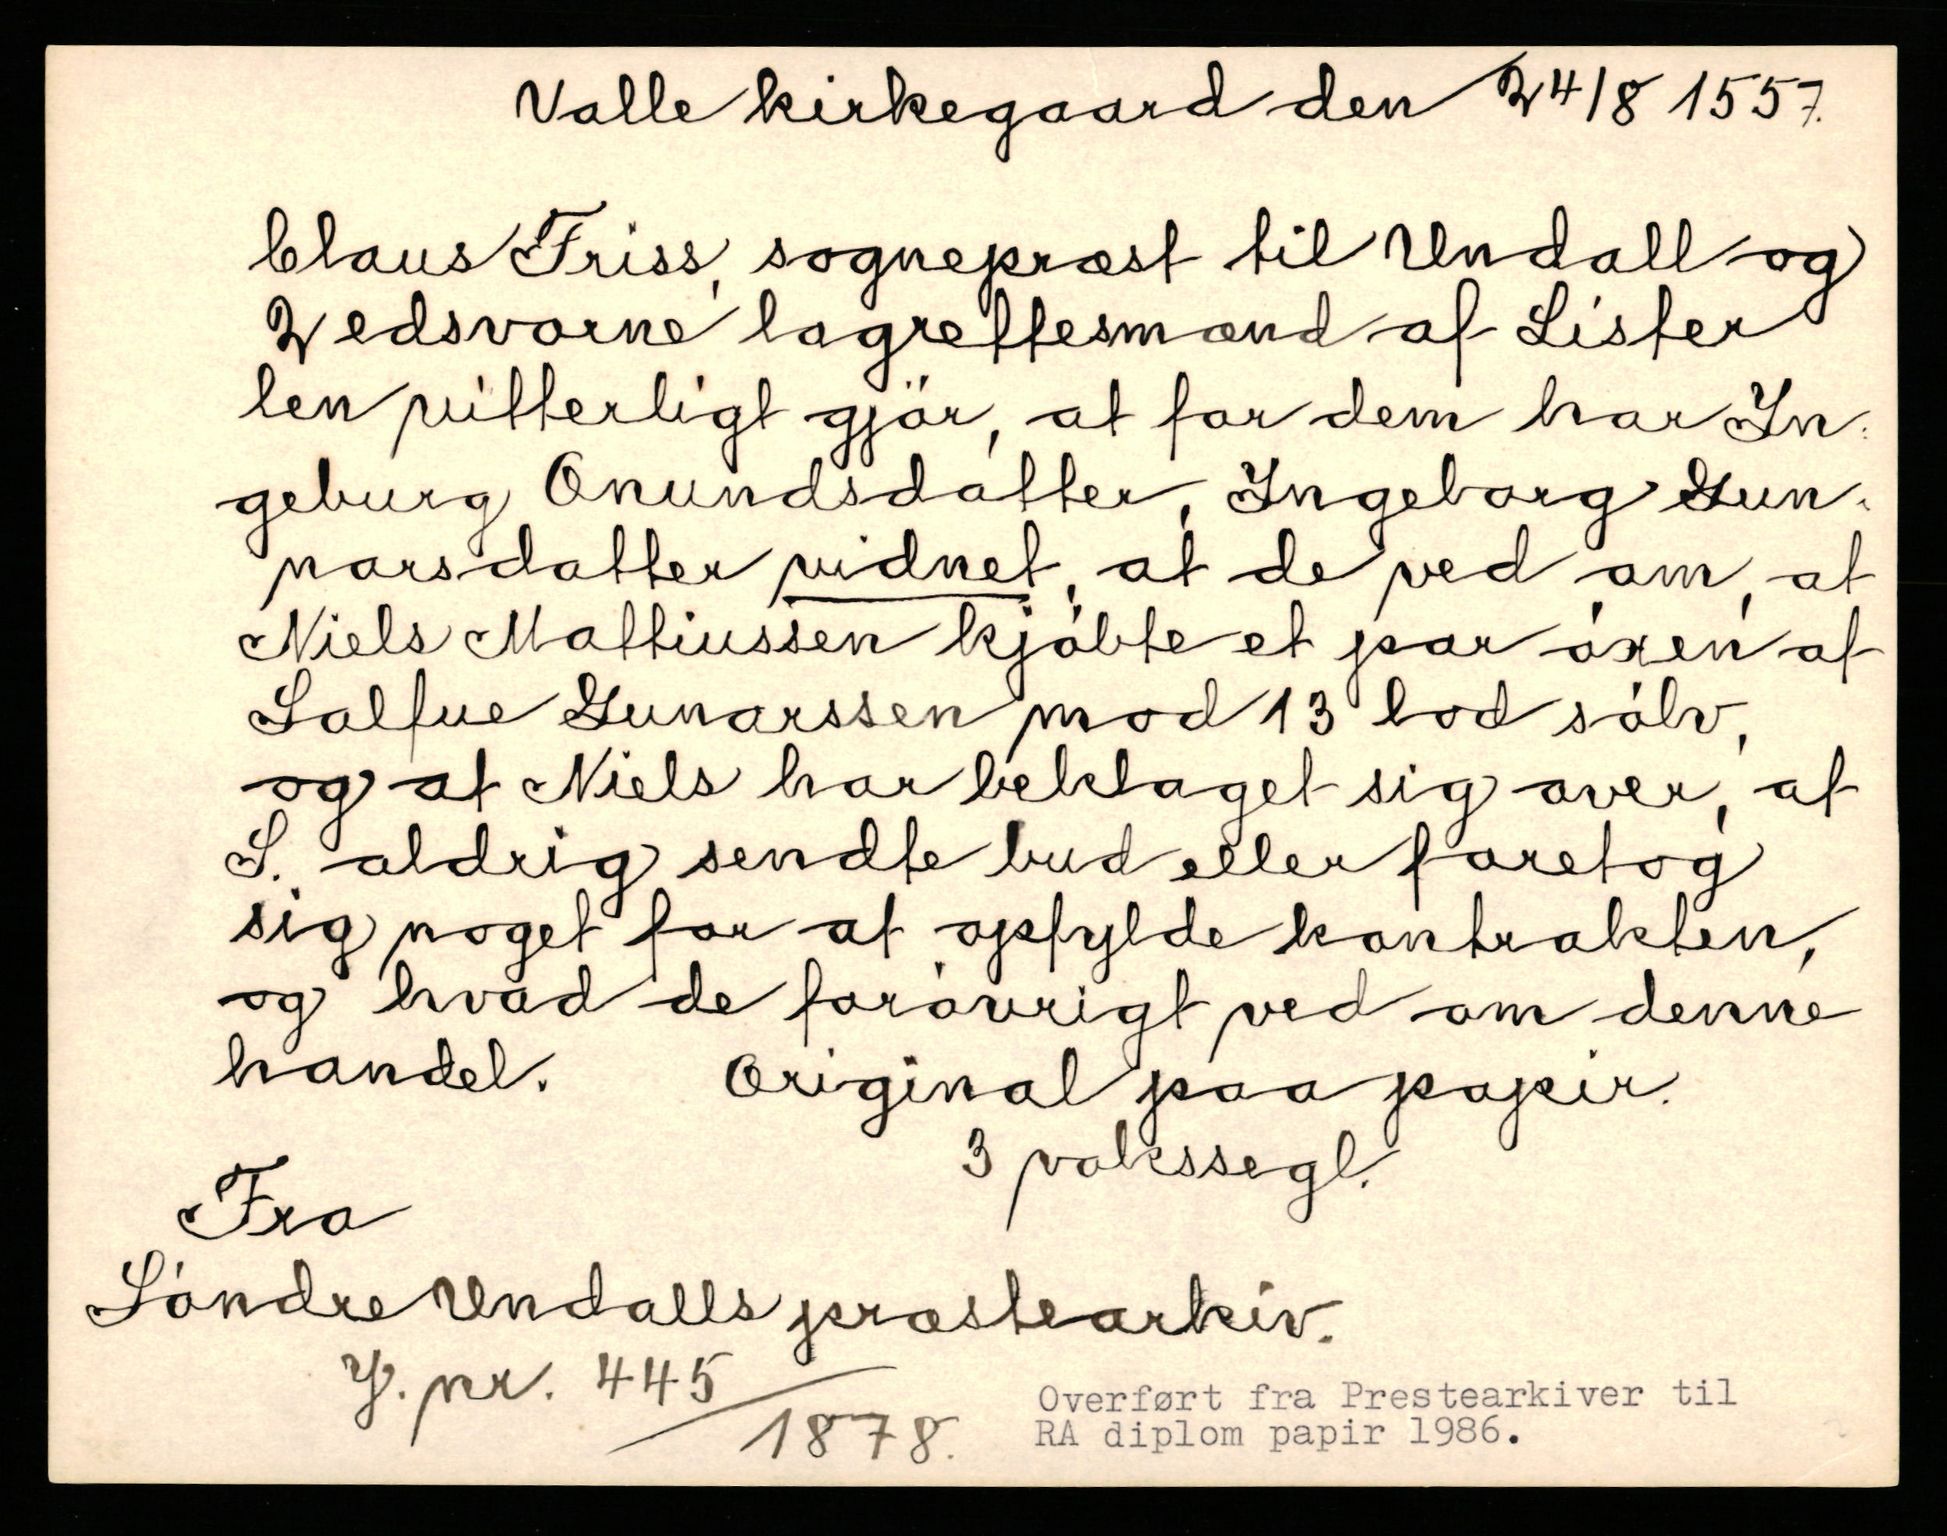 Valle kirkegaard den 24/8 1557.
Claus Friss, sognepræst til Undall og
2 edsvorne lagrettesmænd af Lister
len vitterligt gjör, at for dem har In-
geburg Onundsdatter, Ingeborg Gun-
narsdatter vidnet, at de ved om, at
Niels Mattiussen kjóbte et par óxen af
Salfue Gunarssen mod 13 lod sólv,
og at Niels har beklaget sig over, at
S. aldrig sendte bud eller foretog
sig noget for at opfylde kontrakten,
og hvad de foróvrigt ved om denne
handel. Original paa papir.
3 vokssegl.
Fra
Söndre Undalls præstearkiv.
J. nr. 445/1878.
Overført fra Prestearkiver til
RA diplom papir 1986.